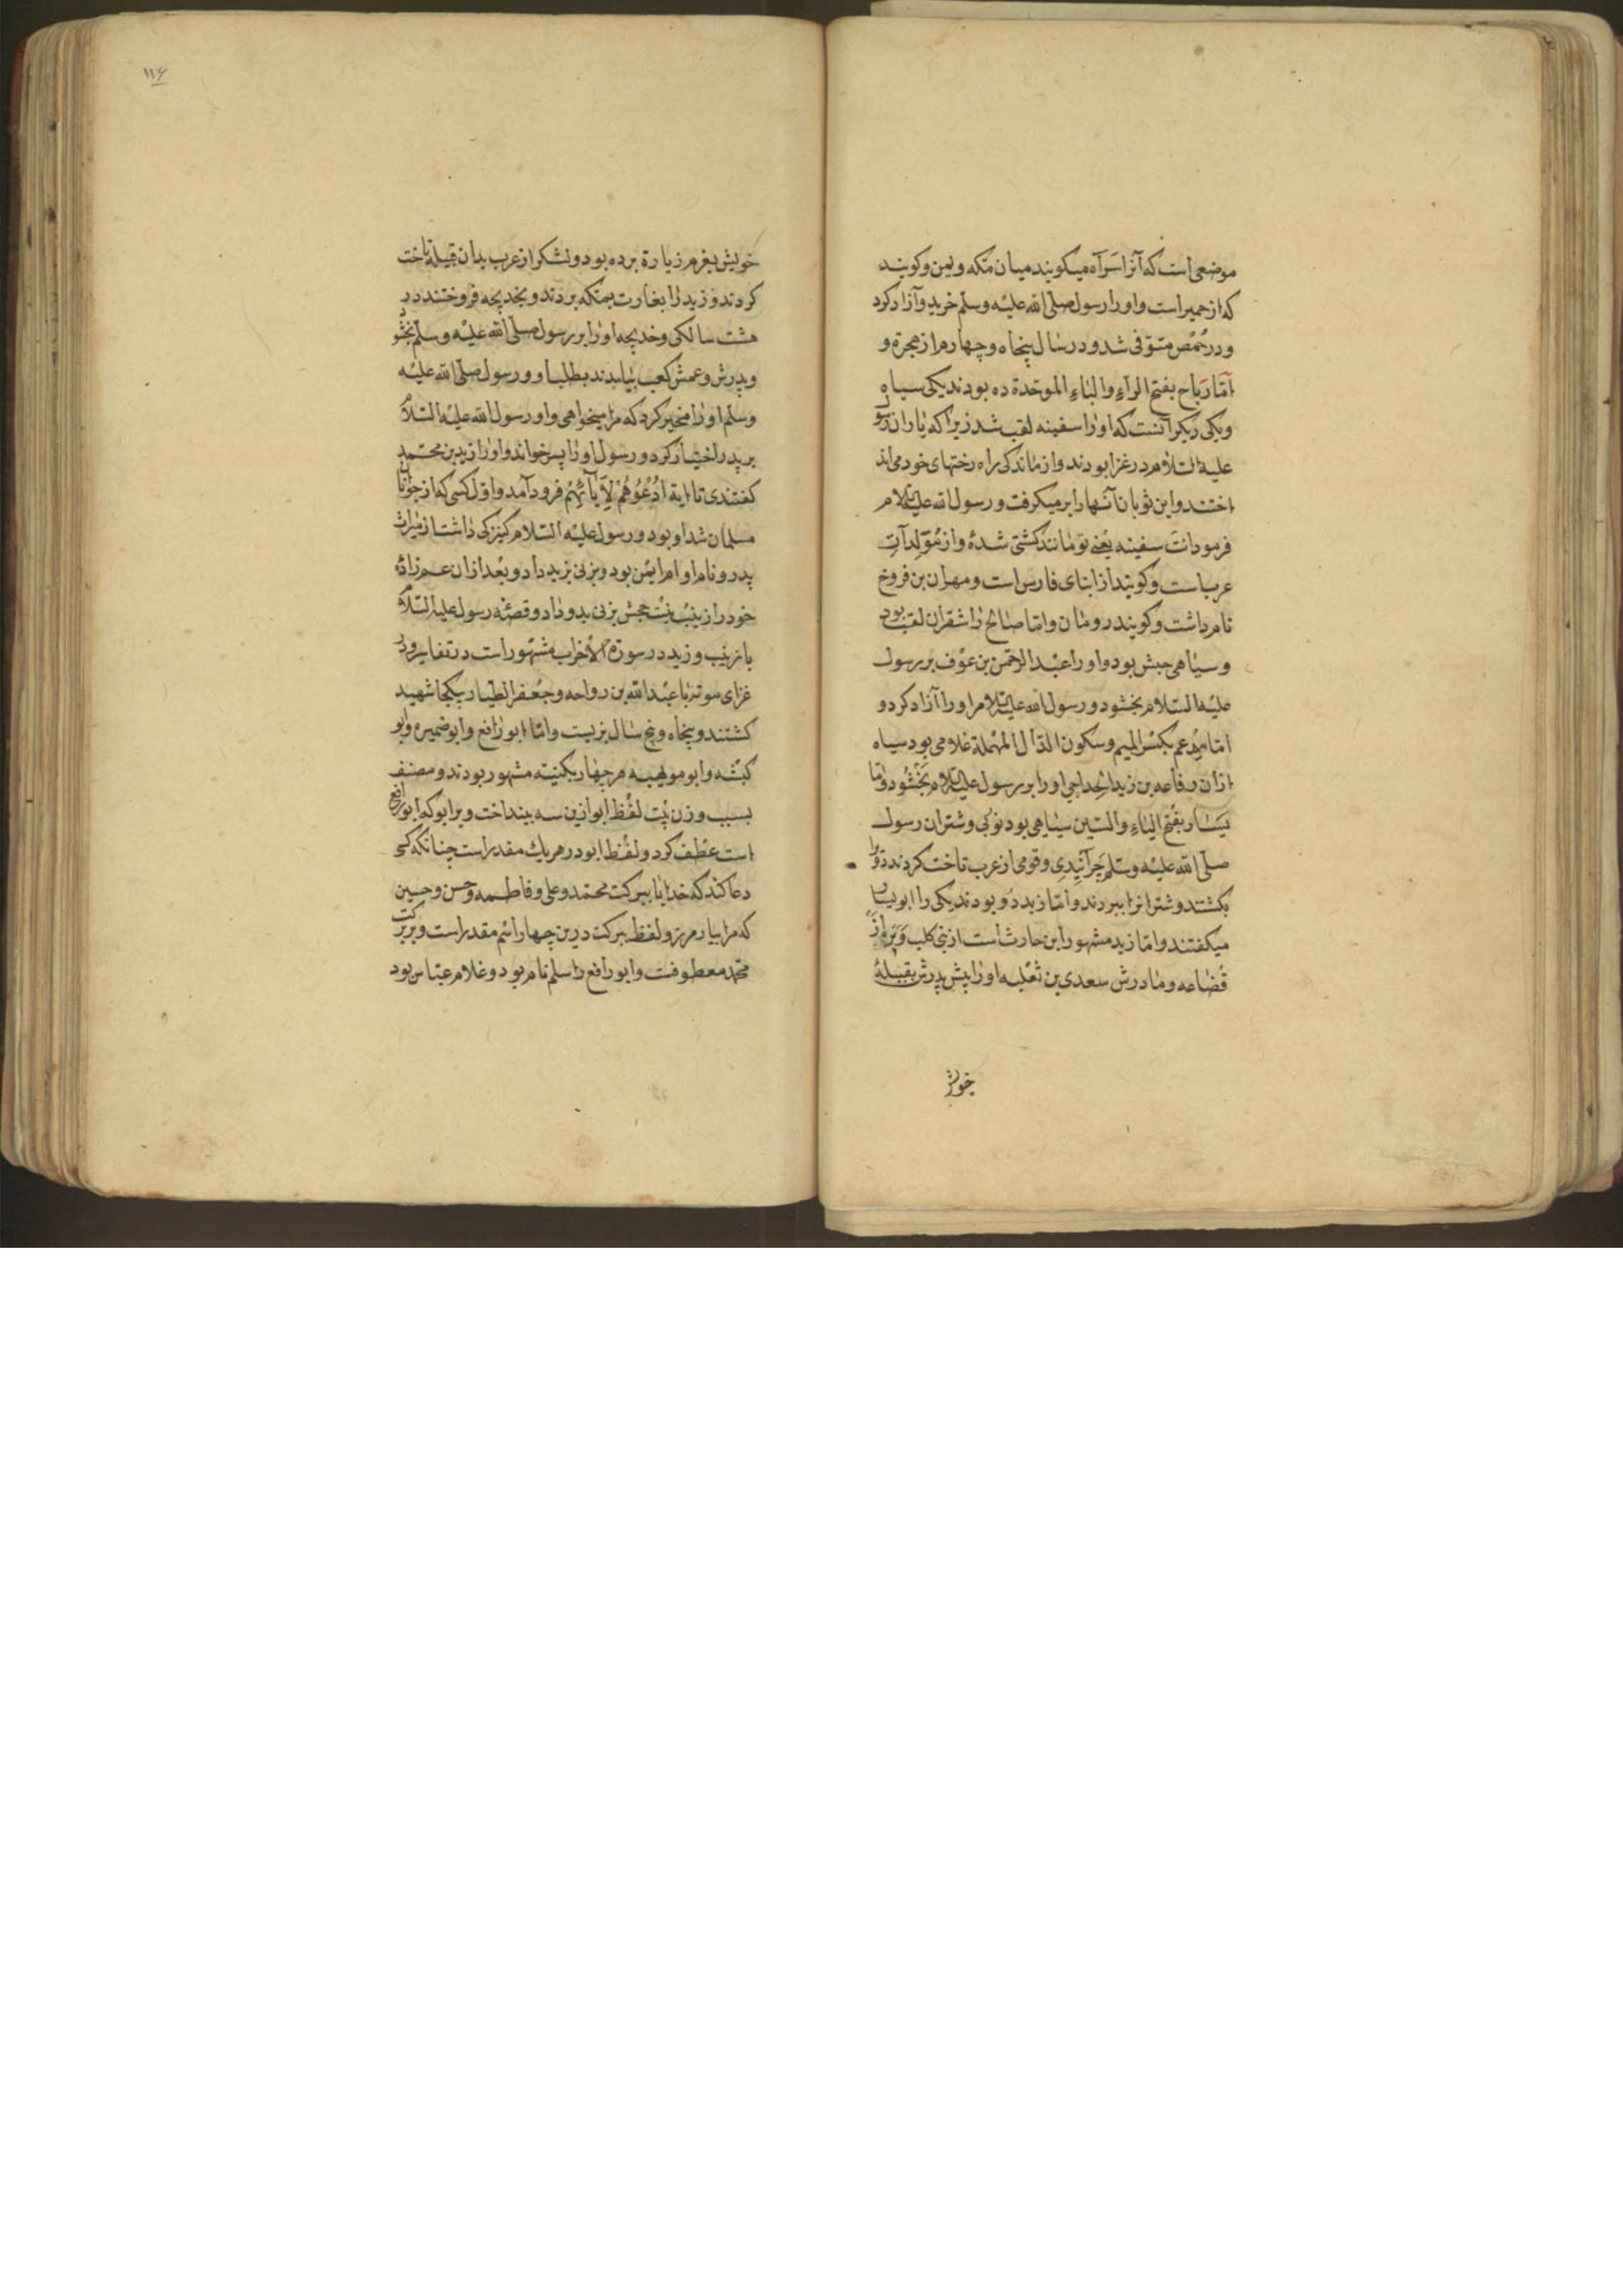 موضعی است که آنرا سرآه میکویند میان مکه ویمن وکویند
که از حمیر است واورا رسول صلّی الله علیه وسلّم خرید وآزاد کرد
ودر حُمْص متوّفی شد ودر سال پنجاه وچهارم از هجرة و
امّا رَباح بفتح الراءِ والباءِ الموحّدة ده بودند یکی سیاه
ویکی دیکر آنست که اورا سفینه لقب شد زیرا که یاران رسول
علیه السّلام در غزا بودند واز ماندکی راه رختهای خود می اند
اختند واین ثوبان آنها را برمیکرفت ورسول الله علیه السلام
فرمود انتَ سفینه یعنی تو مانند کشتی شدهٔ واز مُوَلّدات
عرب است وکویند از ابنای فارس است ومهران بن فروخ
نام داشت وکویند رومان وامّا صالح را شقران لقب بود
وسیاهی حبش بود واورا عبد الرحمن بن عوف بر رسول
علیه السّلام بخشود ورسول الله علیه السلام اورا آزاد کرد و
امّا مِدْعم بکسر المیم وسکون الدّال المهملة غلامی بود سیاه
از آن رفاعه بن زید الجداجی اورا بر رسول علیه السلام بخشود وامّا
یَسَار بفتح الیاءِ والسّین سیاهی بود نوبی وشتران رسول
صلّی الله علیه وسلّم چرآنیدی وقومی از عرب تاخت کردند واورا
بکشتند وشترانرا ببردند وامّا زید دو بودند یکی را ابو یسار
میکفتند وامّا زید مشهور ابن حارث است از بنی کلب وَبَره از
قُضاعه ومادرش سعدی بن ثعلبه اورا پیش پدرش بقبیلهٔ
خویش
۱۱۶
خویش بعزم زیارة برده بود ولشکر از عرب بدان قبیله تاخت
کردند وزید را بغارت بمکه بردند وبخدیجه فروختند در
هشت سالکی وخدیجه اورا بر رسول صلّی الله علیه وسلّم بخشود
وپدرش وعمش کعب بیامدند بطلب او ورسول صلّی الله علیه
وسلّم اورا مخیر کرد که مرا میخواهی واو رسول الله علیه السّلام
بر پدر اختیار کرد ورسول اورا پسر خواند واورا زید بن محمّد
کفتندی تا ایة اُدْعُوهُمْ لِآبآئِهِمْ فرود آمد واوّل کسی که از جوانان
مسلمان شد او بود ورسول علیه السّلام کنیزکی داشت از میراث
پدر ونام او ام ایمن بود وبزنی بزید داد وبعد از ان عم زادهٔ
خود را زینب بنت جحش بزنی بدو داد وقصهٔ رسول علیه السّلام
با زینب وزید در سورة الاحزاب مشهور است در تفاسیر ودر
غزای موته با عبد الله بن رواحه وجعفر الطیار یکجا شهید
کشتند وپنجاه وپنج سال بزیست وامّا ابو رافع وابو ضمیره وابو
کبشه وابو مویهبه هر چهار بکنیته مشهور بودند ومصنف
بسبب وزن بیت لفظ ابو ازین سه بینداخت وبر ابو که ابو رافع
است عطف کرد ولفظ ابو در هر یك مقدر است چنانکه کسی
دعا کند که خدایا ببرکت محمّد وعلی وفاطمه وحسن وحسین
که مرا بیامرز ولفظ ببرکت درین چهار اسم مقدر است وبر برکت
محمّد معطوفت وابو رافع را سلم نام بود وغلام عبّاس بود